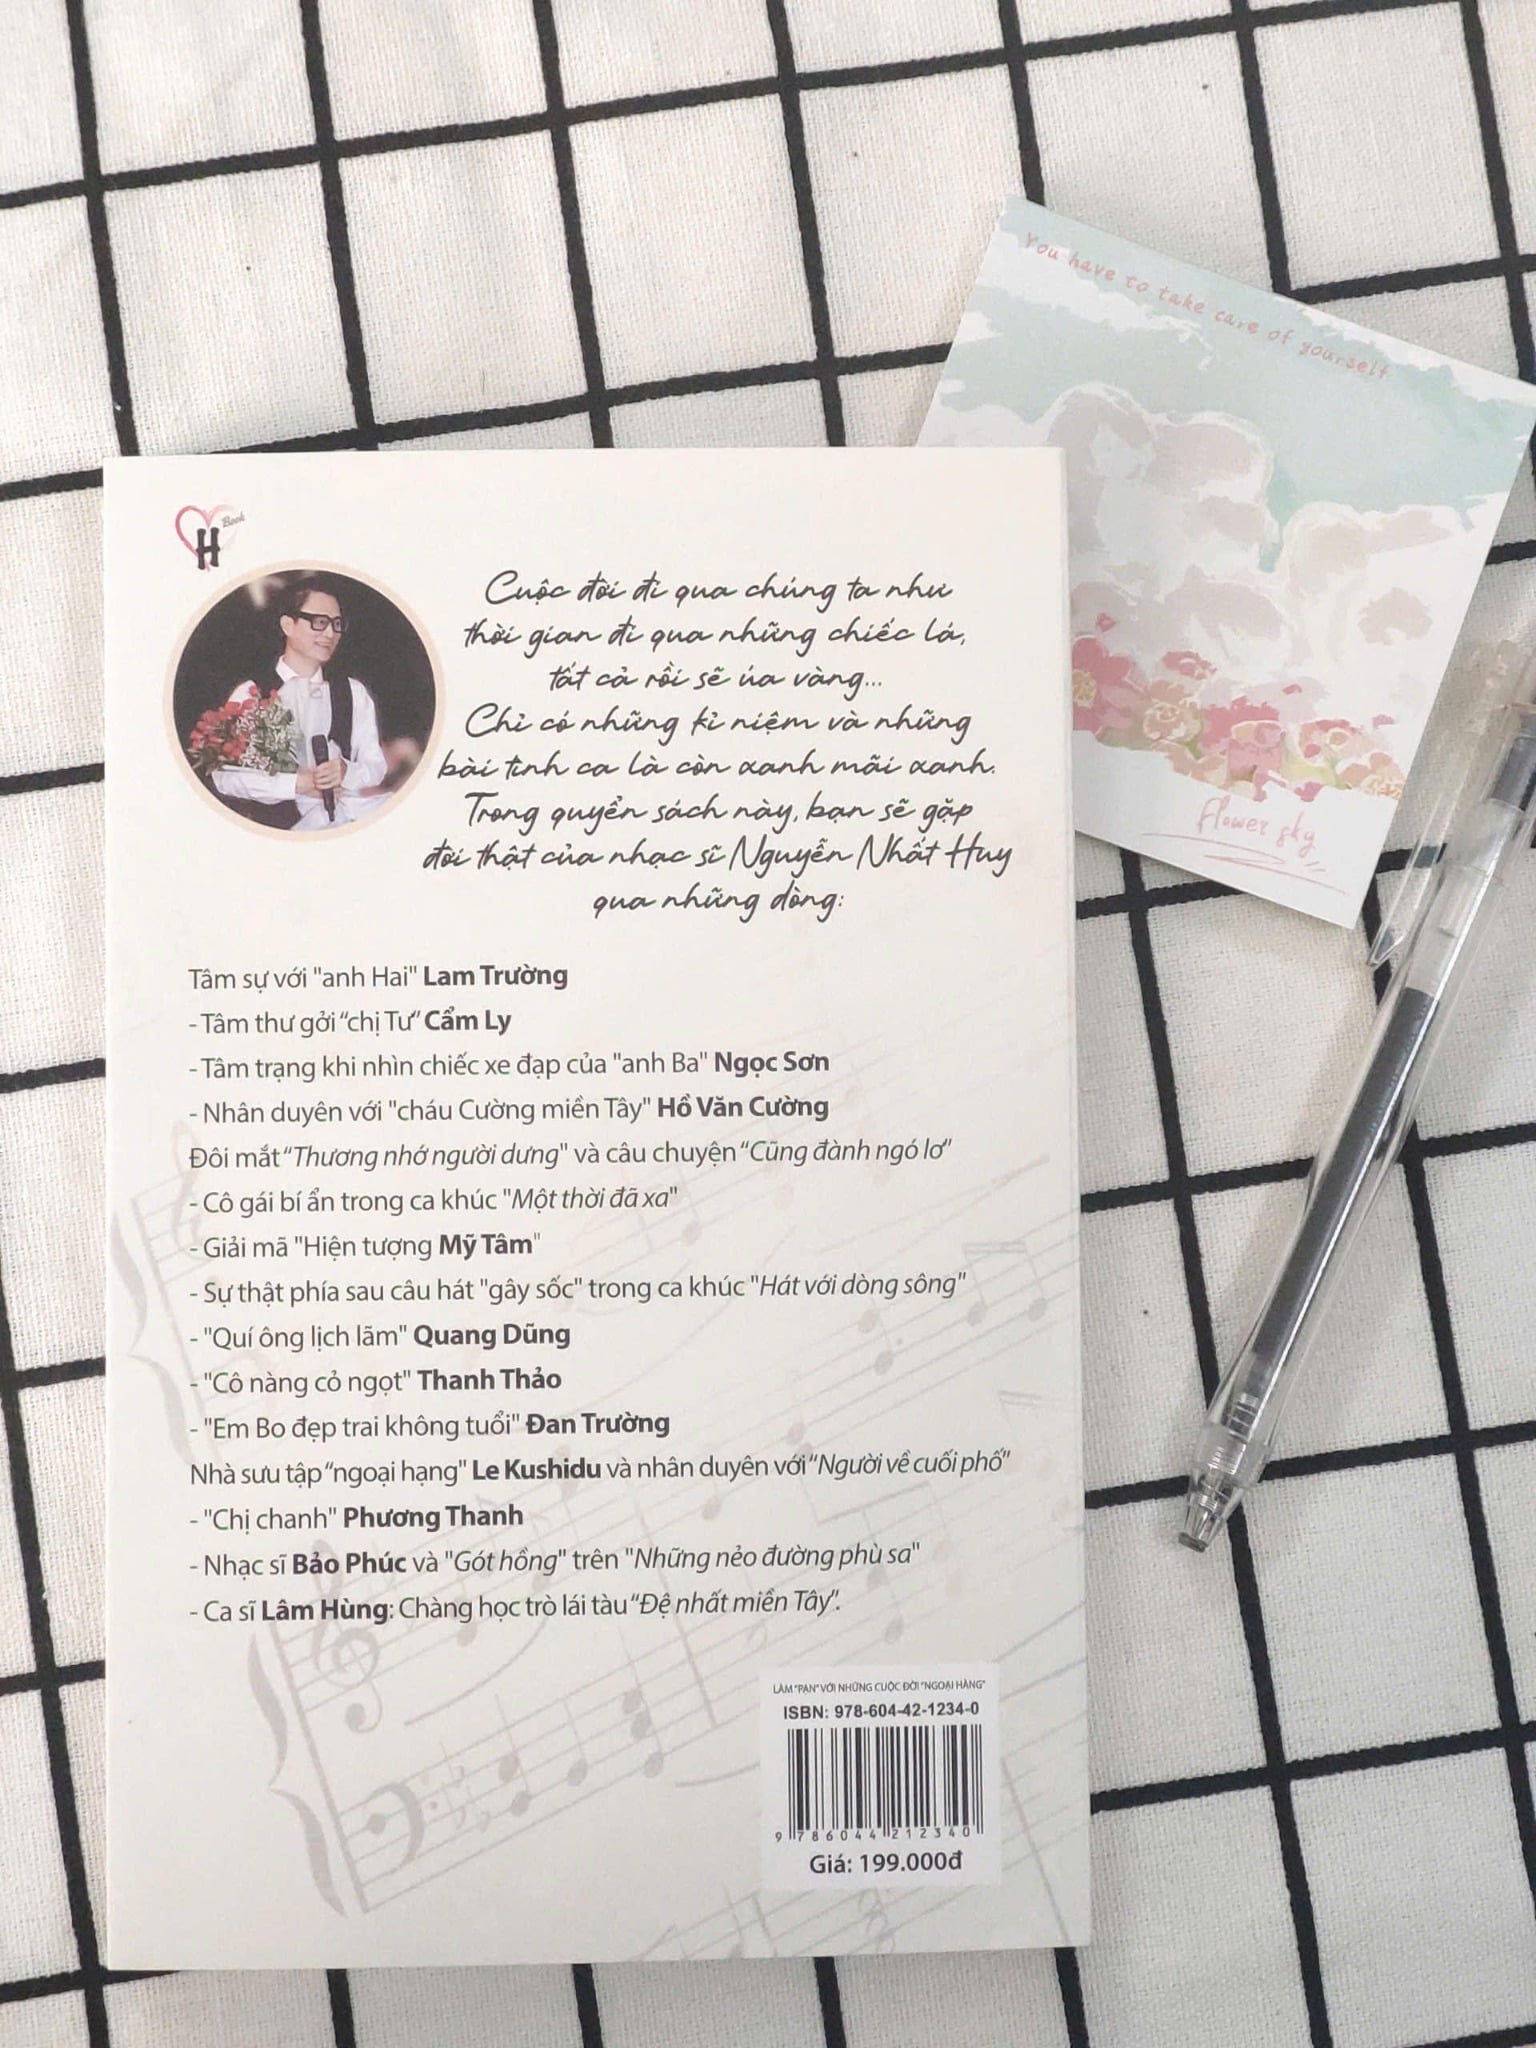 You have to take care of yourself
Book
H
Cuộc đời đi qua chúng ta như
thời gian đi qua những chiếc lá,
tất cả rồi sẽ úa vàng...
Chỉ có những kỉ niệm và những
bài tình ca là còn xanh mãi xanh.
Trong quyển sách này, bạn sẽ gặp
đời thật của nhạc sĩ Nguyễn Nhất Huy
qua những dòng:
flower sky
Tâm sự với "anh Hai" Lam Trường
- Tâm thư gởi “chị Tư” Cẩm Ly
- Tâm trạng khi nhìn chiếc xe đạp của "anh Ba" Ngọc Sơn
- Nhân duyên với "cháu Cường miền Tây" Hồ Văn Cường
Đôi mắt “Thương nhớ người dưng" và câu chuyện “Cũng đành ngó lơ”
- Cô gái bí ẩn trong ca khúc "Một thời đã xa"
- Giải mã "Hiện tượng Mỹ Tâm"
- Sự thật phía sau câu hát "gây sốc" trong ca khúc "Hát với dòng sông"
- "Quí ông lịch lãm" Quang Dũng
- "Cô nàng cỏ ngọt" Thanh Thảo
- "Em Bo đẹp trai không tuổi" Đan Trường
Nhà sưu tập “ngoại hạng" Le Kushidu và nhân duyên với “Người về cuối phố"
- "Chị chanh" Phương Thanh
- Nhạc sĩ Bảo Phúc và "Gót hồng" trên "Những nẻo đường phù sa"
- Ca sĩ Lâm Hùng: Chàng học trò lái tàu “Đệ nhất miền Tây”.
LÀM "PAN" VỚI NHỮNG CUỘC ĐỜI "NGOẠI HÀNG"
ISBN: 978-604-42-1234-0
9 786044 212340
Giá: 199.000đ